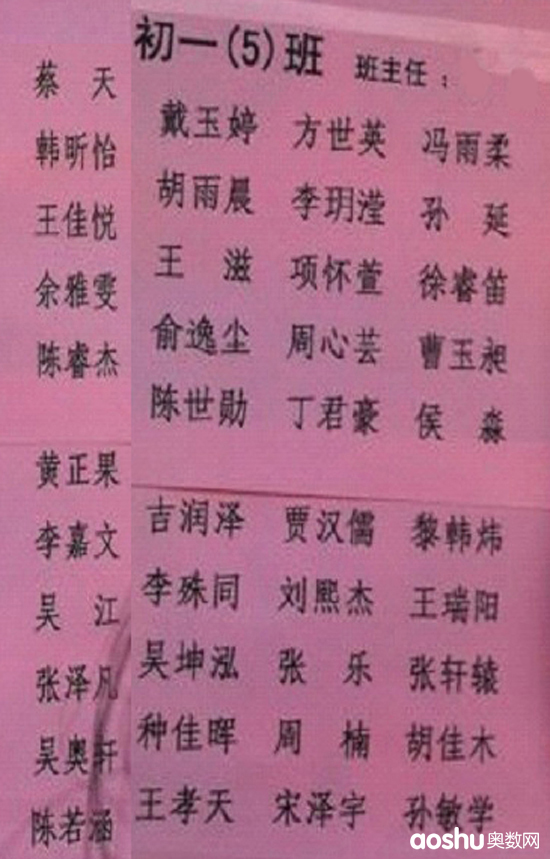 初一(5)班 班主任：
蔡天 戴玉婷 方世英 冯雨柔
韩昕怡 胡雨晨 李玥滢 孙延
王佳悦 王滋 项怀萱 徐睿笛
余雅雯 俞逸尘 周心芸 曹玉昶
陈睿杰 陈世勋 丁君豪 侯淼
黄正果 吉润泽 贾汉儒 黎韩炜
李嘉文 李殊同 刘熙杰 王瑞阳
吴江 吴坤泓 张乐 张轩辕
张泽凡 种佳晖 周楠 胡佳木
吴奥轩 王孝天 宋泽宇 孙敏学
陈若涵
aoshu奥数网